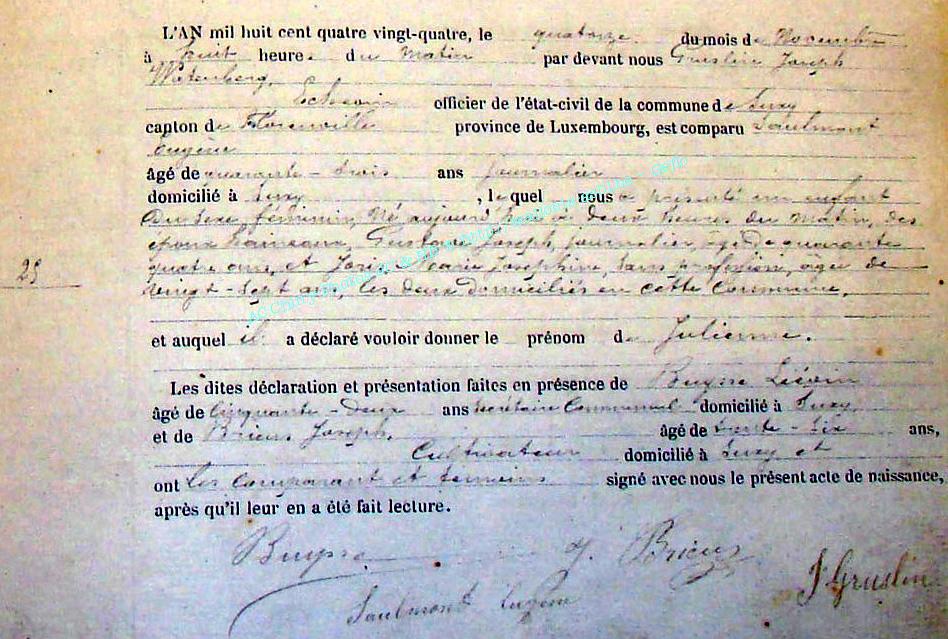 L'AN mil huit cent quatre vingt-quatre, le quatorze du mois de Novembre
à huit heures du matin par devant nous Gruslin Joseph
Echevin officier de l'état-civil de la commune de Suxy
canton de Florenville province de Luxembourg, est comparu Saulmont
Eugène
âgé de quarante-trois ans journalier
domicilié à Suxy, lequel nous a présenté un enfant
du sexe féminin, né aujourd'hui à deux heures du matin, des
époux Gustave Joseph, journalier, âgé de quarante
quatre ans, et Marie Joséphine, sans profession, âgée de
vingt-sept ans, les deux domiciliés en cette Commune.
25
et auquel il a déclaré vouloir donner le prénom de Julienne.
Les dites déclaration et présentation faites en présence de Buysse Liévin
âgé de Cinquante-deux ans Secrétaire Communal domicilié à Suxy
et de Brieus Joseph, âgé de trente-six ans,
Cultivateur domicilié à Suxy et
ont les comparant et témoins signé avec nous le présent acte de naissance,
après qu'il leur en a été fait lecture.
Buysse J. Brieus
J Gruslin
Saulmont Eugène